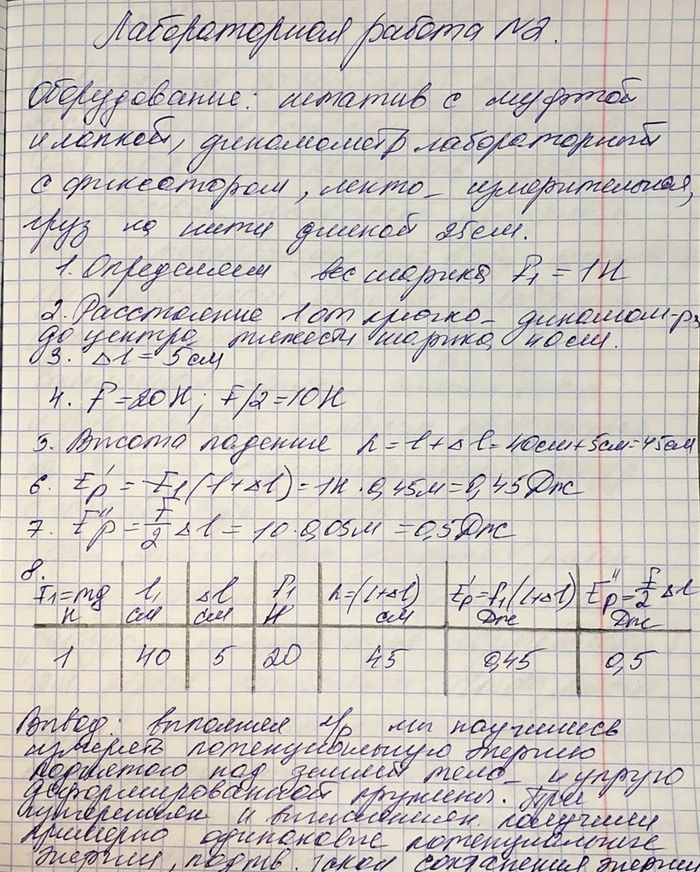 Лабораторная работа №2.
Оборудование: штатив с муфтой
и лапкой, динамометр лабораторный
с фиксатором, лента измерительная,
груз на нити длиной 25см.
1. Определяем вес шарика F₁ = 1Н
2. Расстояние l от крючка динамом-ра
до центра тяжести шарика 40см.
3. Δl = 5см
4. F = 20Н; F/2 = 10Н
5. Высота падения h = l + Δl = 40см + 5см = 45см
6. E'p = F₁(l + Δl) = 1Н · 0,45м = 0,45Дж
7. E''p = F/2 Δl = 10 · 0,05м = 0,5Дж
8.
F₁=mg Н | l, см | Δl см | F₁ Н | h=(l+Δl) см | E'p=F₁(l+Δl) Дж | E''p=F/2 Δl Дж
1 | 40 | 5 | 20 | 45 | 0,45 | 0,5
Вывод: выполняя л/р мы научились
измерять потенциальную энергию
поднятого над землей тела и упруго
деформированной пружины. При
измерении и вычислении получили
примерно одинаковые потенциальные
энергии, подтв. закон сохранения энергии